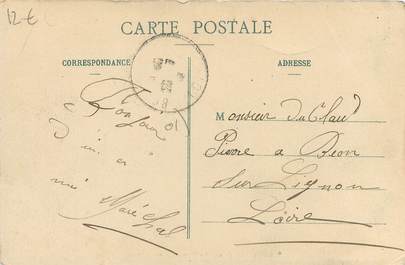 12 €
CARTE POSTALE
CORRESPONDANCE
ADRESSE
Bonjour
d'un ami
Maréchal
Monsieur
Pierre a Boen
sur Lignon
Loire